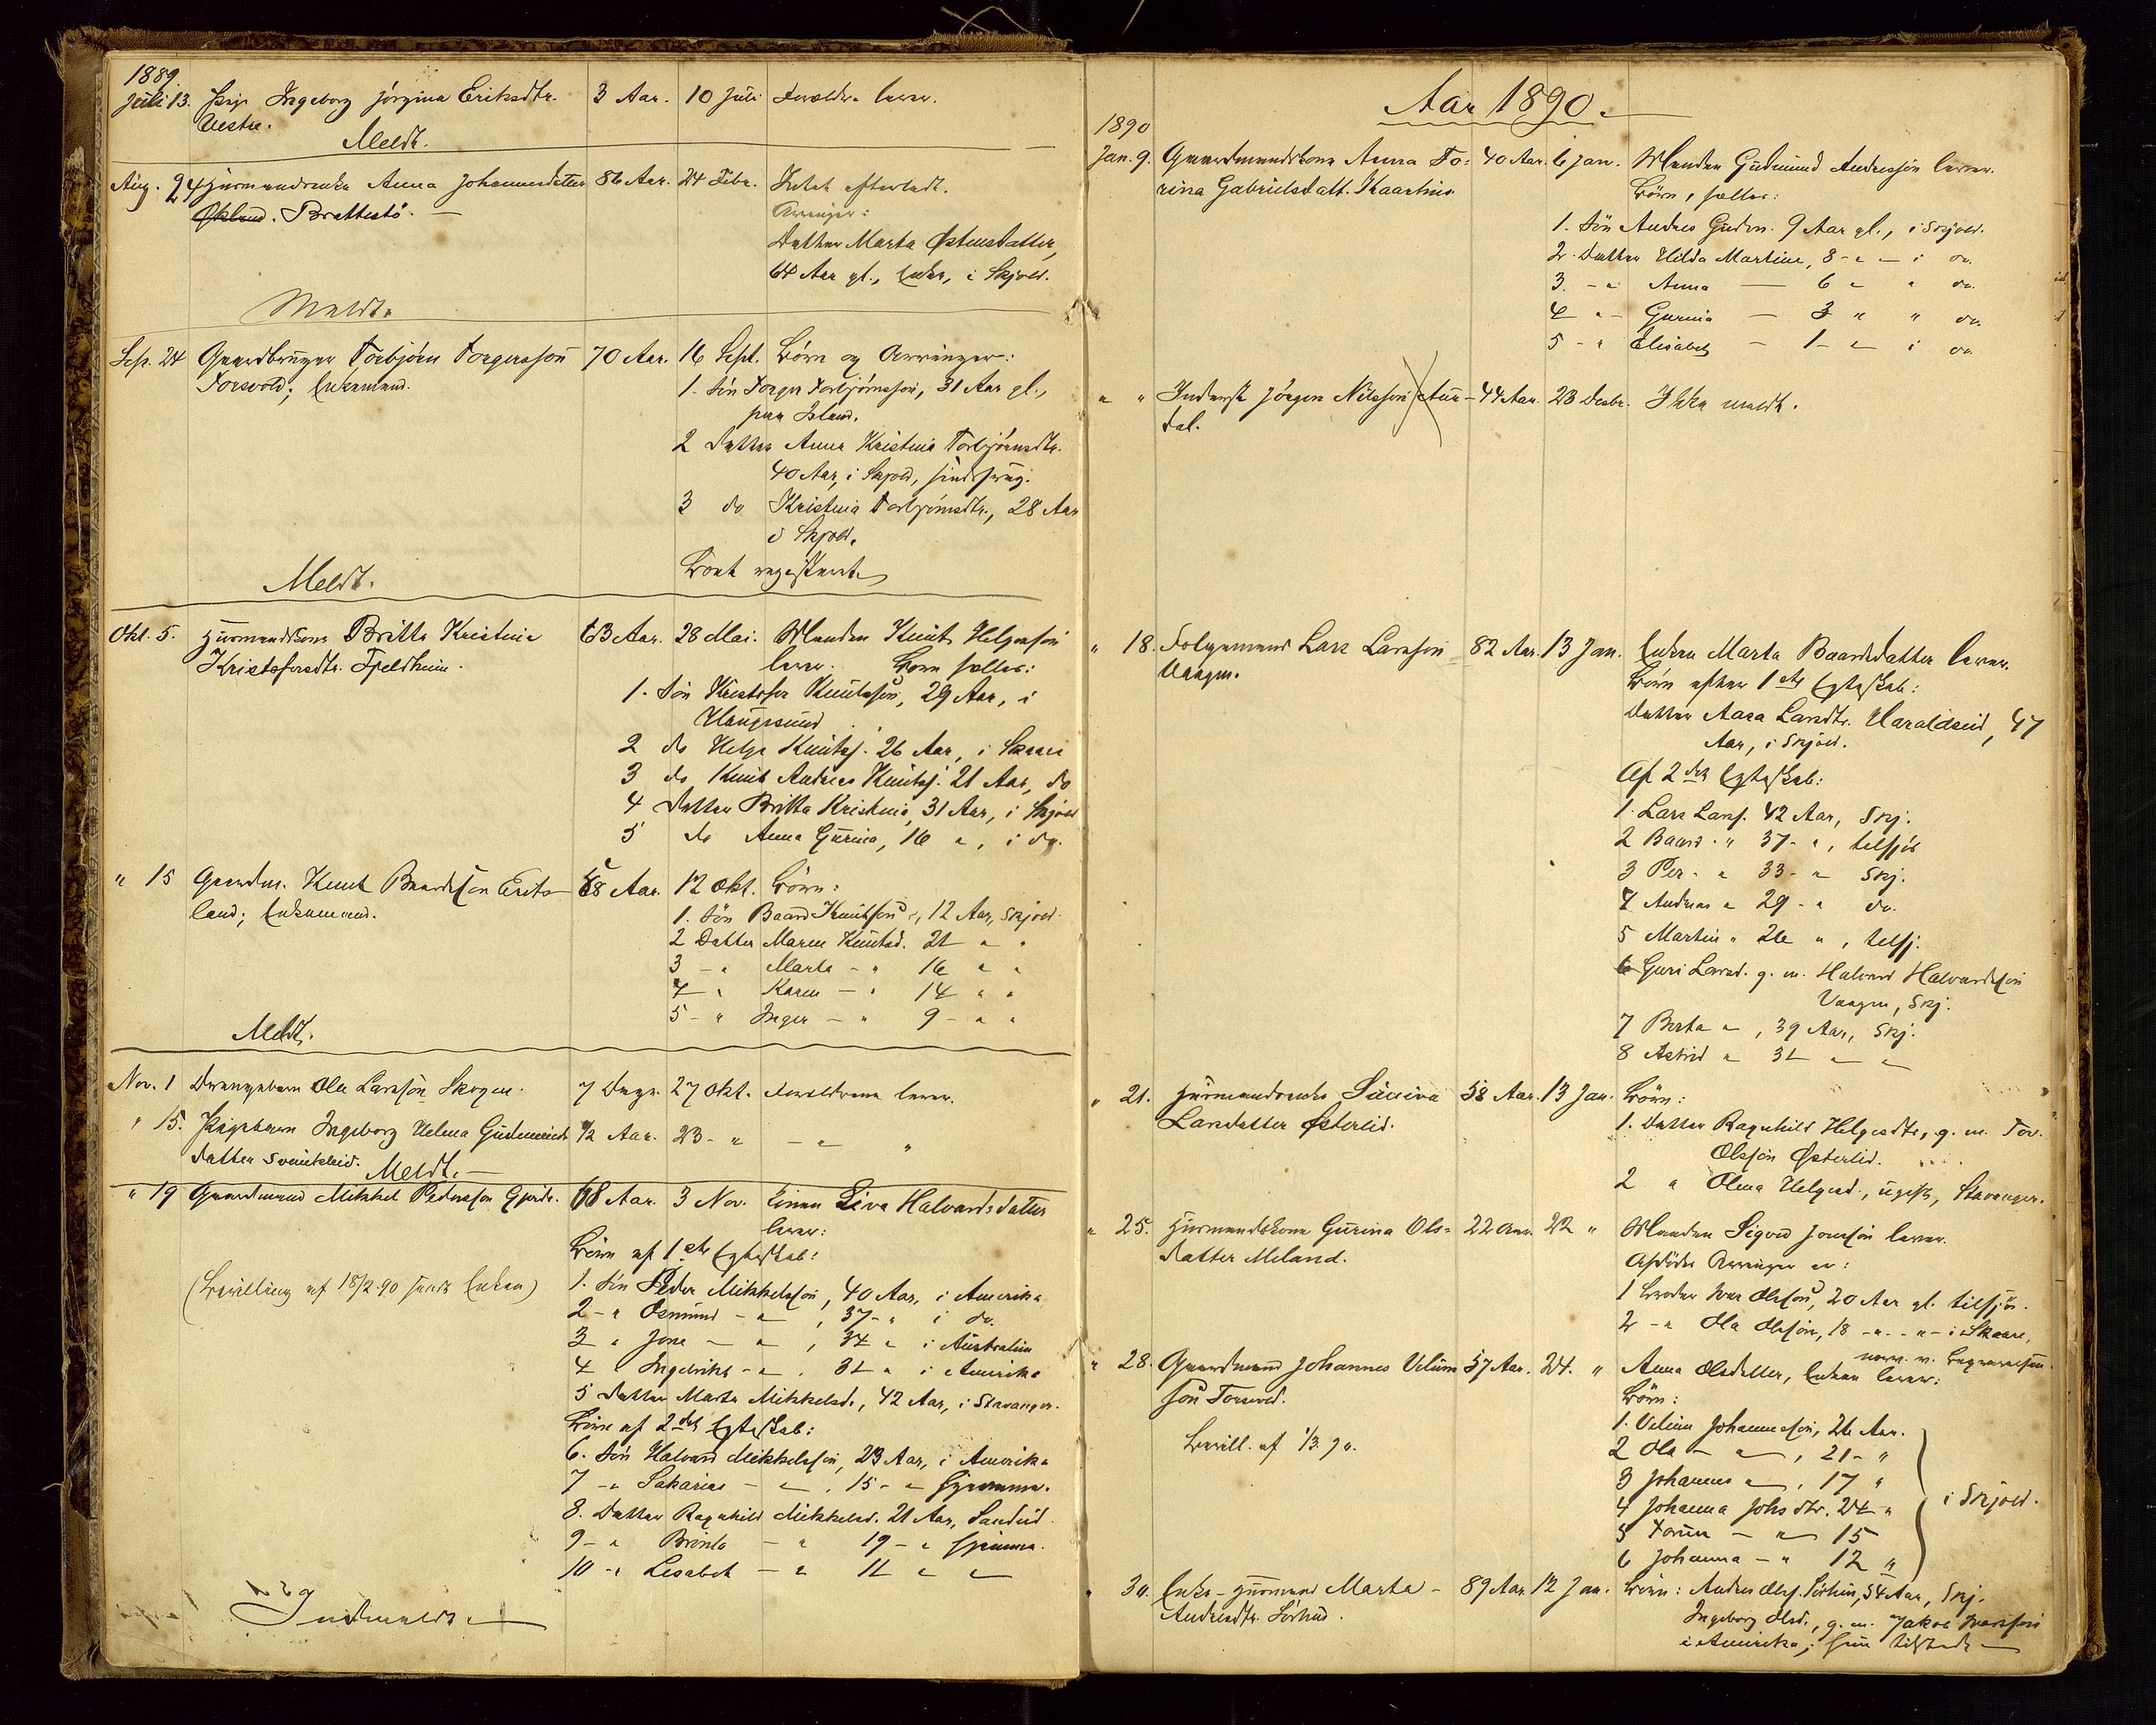 1889.
Juli 13. Pige Ingeborg Jörgina Eriksdtr. 3 Aar. 10 Juli Forældre lever.
Vestre.
Meldt.
Aug. 24 Husmandsenke Anna Johannesdatter 86 Aar. 24 Febr. Intet efterladt.
Økland. Brattestö. Arvinger:
Datter Marta Østensdatter,
64 Aar gl., Enke, i Skjold.
Meldt.
Sep. 24 Gaardbruger Torbjörn Torgersson 70 Aar. 16 Sept. Börn og Arvinger:
Forsvold; Enkemand. 1. Sön Torger Torbjörnsson, 31 Aar gl.,
paa Island.
2 Datter Anna Kristina Torbjörnsdtr.
40 Aar, i Skjold, sindssvag.
3 do Kristina Torbjörnsdtr., 28 Aar
i Skjold.
Boet registreret.
Meldt.
Okt. 5. Husmandskone Britta Kristina 63 Aar. 28 Mai. Manden Knut Helgesson
Kristofersdtr. Fjeldheim. lever. Born fælles:
1. Sön Kristofer Knutsson, 29 Aar, i
Haugesund
2 do Helge Knutss. 26 Aar, i Skaare
3 do Knut Andreas Knutss. 21 Aar, do
4 Datter Britta Kristina, 31 Aar, i Skjold
5 do Anna Gurina, 16 " , i do.
" 15 Gaardm. Knut Baardsson Eriks- 58 Aar. 12 Okt. Börn:
land; Enkemand. 1. Sön Baard Knutsson, 12 Aar, Skjold.
2 Datter Maren Knutsd. 21 " "
3 - " Marta - " 16 " "
4 - " Karen - " 14 " "
5 - " Inger - " 9 - " "
Meldt.
Nov. 1 Drengebarn Ola Larsson Skogen. 7 Dage. 27 Okt. Forældrene lever.
" 15. Pigebarn Ingeborg Helena Gudmunds- 1/2 Aar. 23 - " - " "
datter Meldt.
" 19 Gaardmand Mikkel Pedersson Gjerde. 68 Aar. 3 Nov. Konen Siva Halvardsdatter
lever:
Börn af 1ste Egteskab:
(Bevilling af 18/2 90 sendt Enken) 1. Sön Peder Mikkelsson, 40 Aar, i Amerika
2 - " Osmund - " , 37 - " i do.
3 " Jone - " , 34 " i Australien
4 " Ingebrikt - " . 31 " i Amerika
5 Datter Marta Mikkelsd., 42 Aar, i Stavanger.
Börn af 2det Egteskab:
6. Sön Halvard Mikkelsson, 23 Aar, i Amerika
7 - " Sakarias - " , 15 - " hjemme.
8. Datter Ragnhild Mikkelsd. 21 Aar, Sandeid.
9 - " Brita - " 19 - " hjemme.
10 - " Lisabet - " 11 " "
Indmeldt
Aar 1890.
1890
Jan. 9. Gaardmandskone Anna To- 40 Aar. 6 Jan. Manden Gudmund Andersson lever.
rina Gabrielsdatt. Kaarhus. Börn, fælles:
1. Sön Andreas Gudm. 9 Aar gl., i Skjold.
2. Datter Hilda Martine, 8 - " - i do.
3. - " Anna - 6 " " do.
4 " - Gurina - 3 " " do.
5 - " Elisabet - 1 - " i do
" " Inderst Jörgen Nilsson Aur- 44 Aar. 23 Decbr. Ikke meldt.
dal.
" 18. Folgemand Lars Larsson 82 Aar. 13 Jan. Enken Marta Baardsdatter lever.
Vaagen. Börn efter 1ste Egteskab:
Datter Aasa Larsdtr. Haraldseid, 47
Aar, i Skjold.
Af 2det Egteskab:
1. Lars Larss. 42 Aar, Skj.
2 Baard. " 37 - " , tilsjös
3 Per - " 33 - " Skj.
4 Andreas " 29 - " do.
5 Martin " 26 " , tilsj.
6 Guri Larsd. g. m. Halvard Halvardsson
Vaagen, Skj.
7 Berta " , 39 Aar, Skj.
8 Astrid " 31 " "
" 21. Husmandsenke Sunniva 58 Aar. 13 Jan. Börn:
Larsdatter Østerlid. 1. Datter Ragnhild Helgesdtr., g. m. Tov.
Olsson Østerlid.
2 " Olena Helgesd., ugift, Stavanger.
" 25. Husmandskone Gurina Ols- 22 Aar. 22 " Manden Sigved Jonsson lever.
datter Meland. Afdödes Arvinger er:
1 Broder Ivar Olsson, 20 Aar gl. tilsjös.
2 - " Ola Olsson, 18 - " - " - i Skaare,
nærv. v. Begravelsen.
" 28. Gaardmand Johannes Velum- 57 Aar. 24. " Anna Olsdatter, Enken lever:
son Forsvold. Börn:
Bevill. af 1/3. 90. 1. Velum Johannesson, 26 Aar.
2 Ola - " , 21 - "
3 Johannes " , 17 "
4 Johanna Johs dtr. 24 " i Skjold.
5 Torun - " 15
6 Johanna - " 12 "
" 30. Enke - Husmand Marta - 89 Aar. 12 Jan. Börn: Andreas Olss. Sörhus, 54 Aar, Skj.
Andersdtr. Sörhus. Ingeborg Olsd., g. m. Jakob Ivarsson
i Amerika; hun tilstede